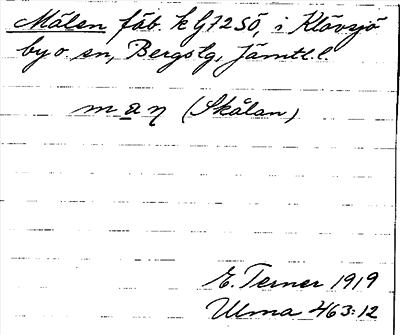 Målen fäb. k G7250, i Klövsjö
by o. sn, Bergs lg, Jämtl. l.
m a ŋ (Skålan)
E. Terner 1919
Ulma 463:12